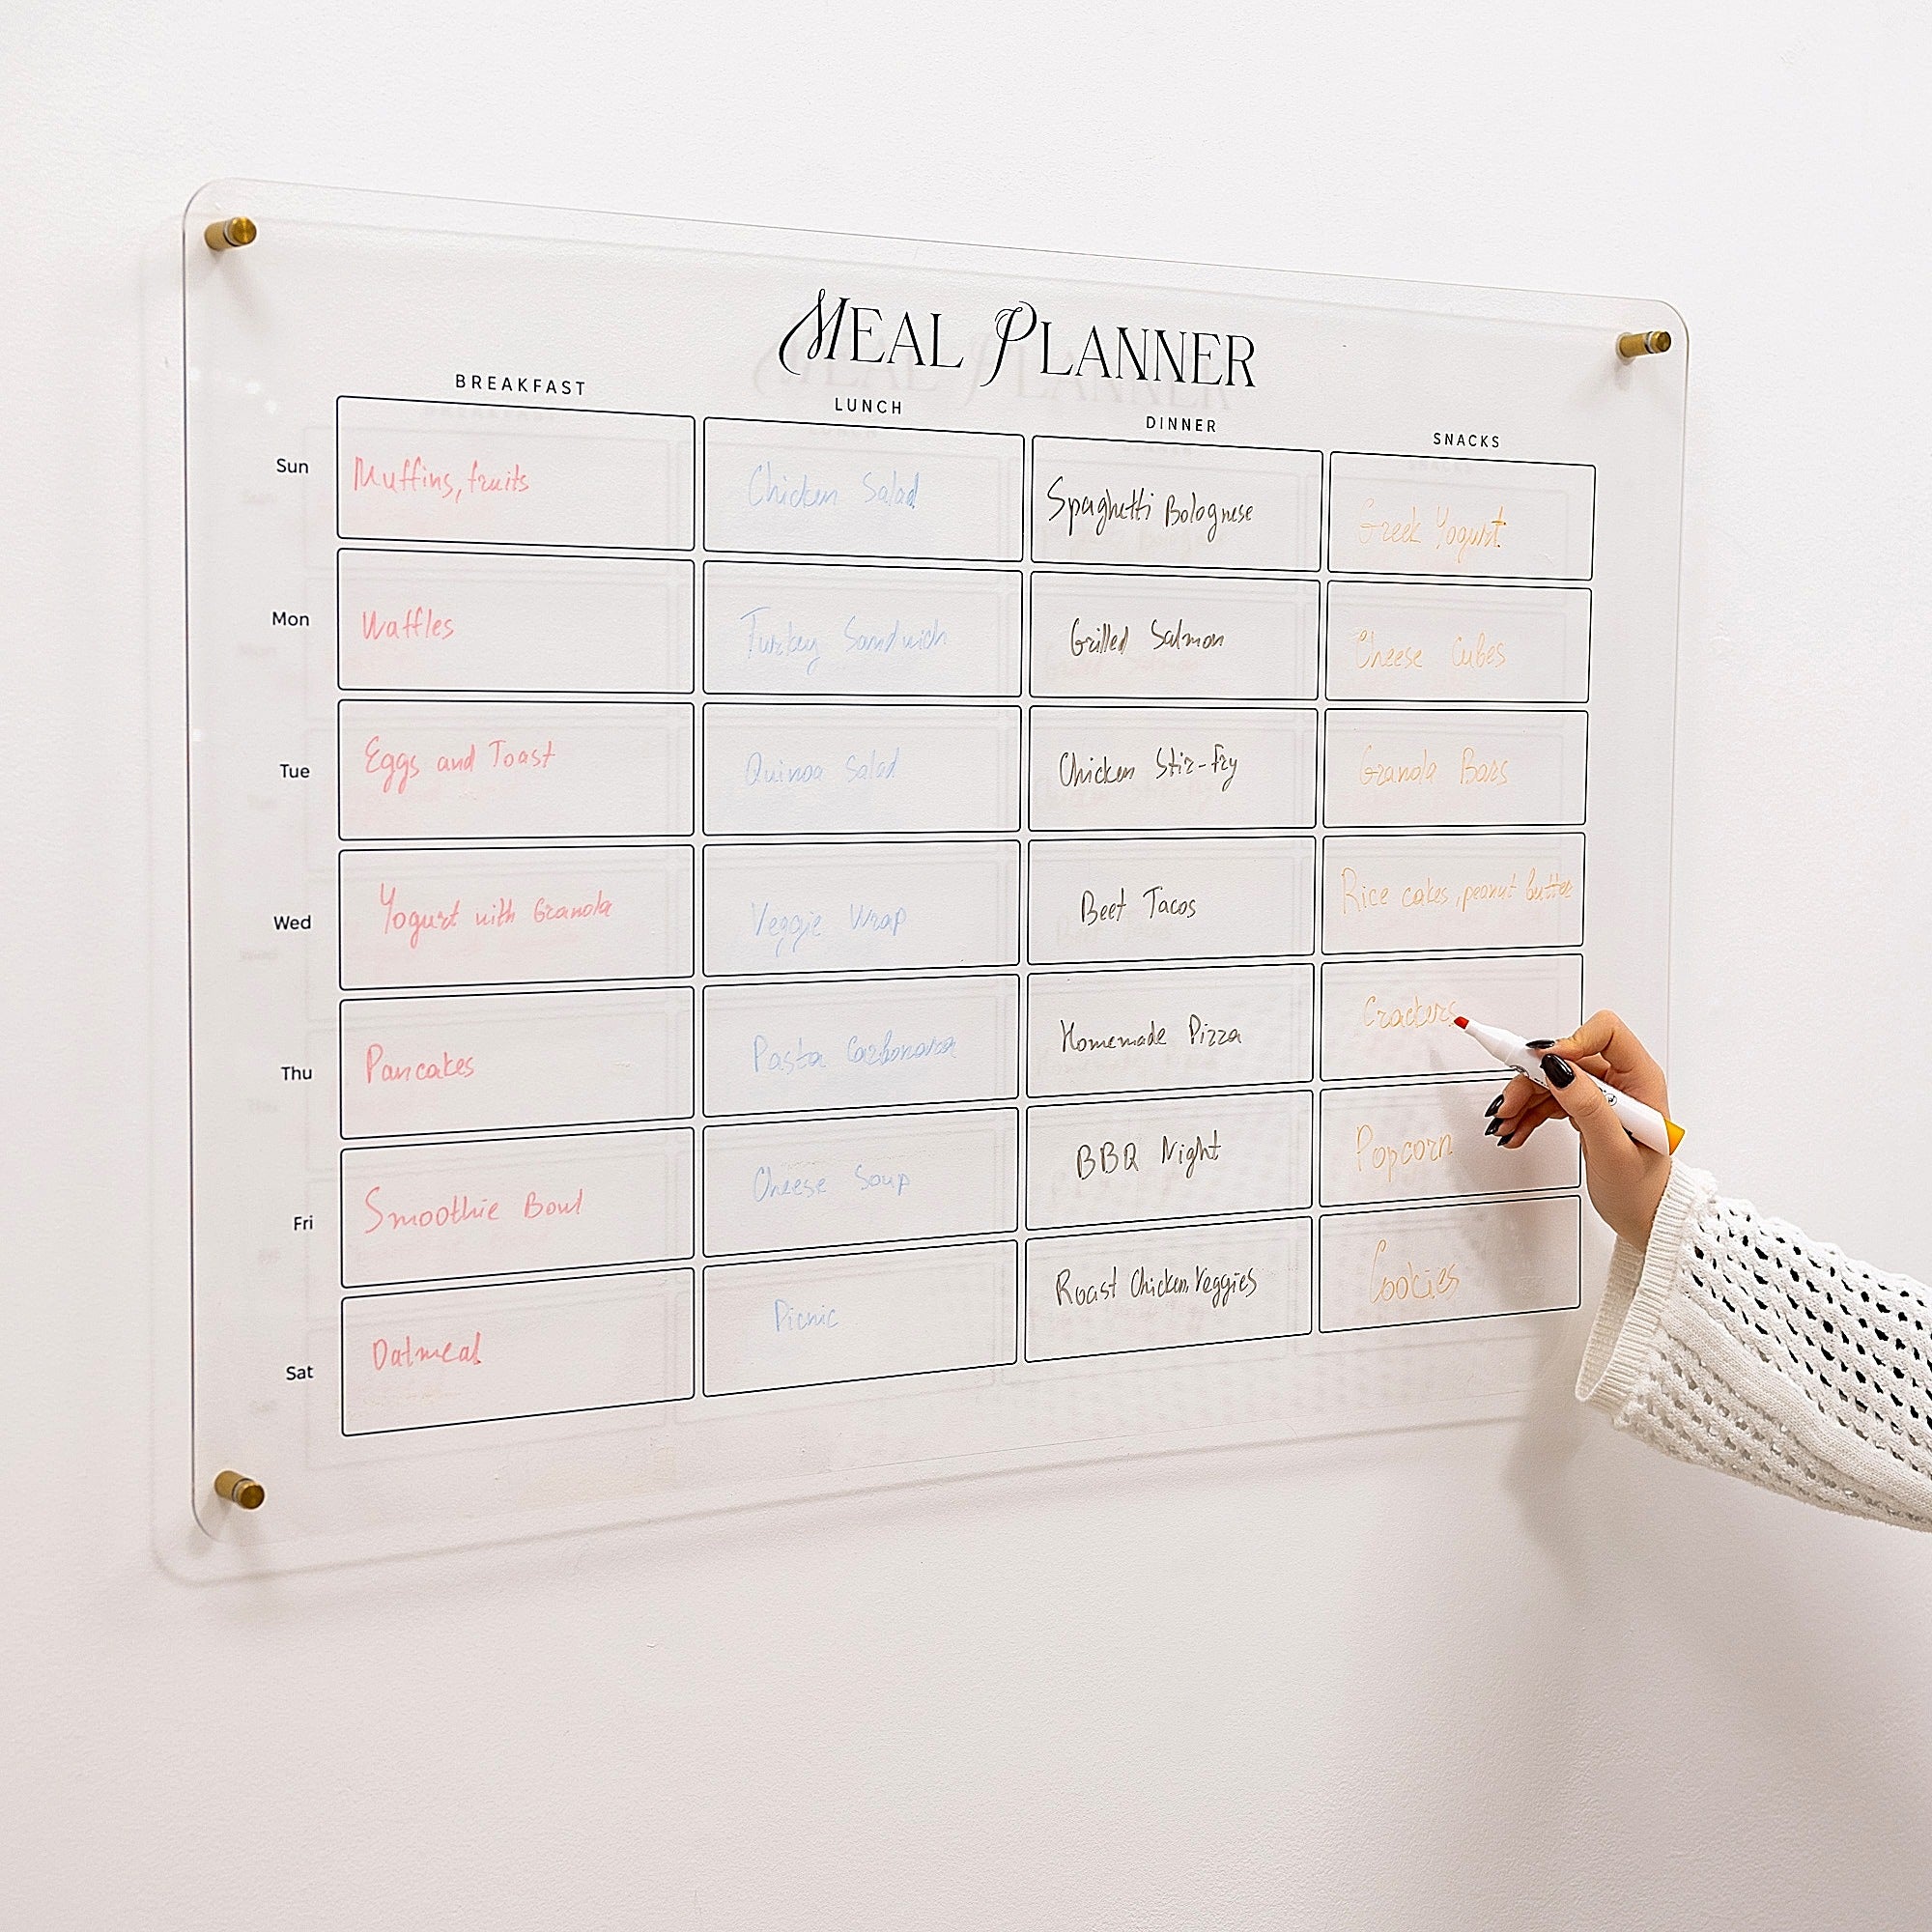 MEAL PLANNER
BREAKFAST LUNCH DINNER SNACKS
Sun Muffins, fruits Chicken Salad Spaghetti Bolognese Greek Yogurt
Mon Waffles Turkey Sandwich Grilled Salmon Cheese Cubes
Tue Eggs and Toast Quinoa Salad Chicken Stir-Fry Granola Bars
Wed Yogurt with Granola Veggie Wrap Beet Tacos Rice cakes, peanut butter
Thu Pancakes Pasta Carbonara Homemade Pizza Crackers
Fri Smoothie Bowl Cheese Soup BBQ Night Popcorn
Sat Oatmeal Picnic Roast Chicken, Veggies Cookies